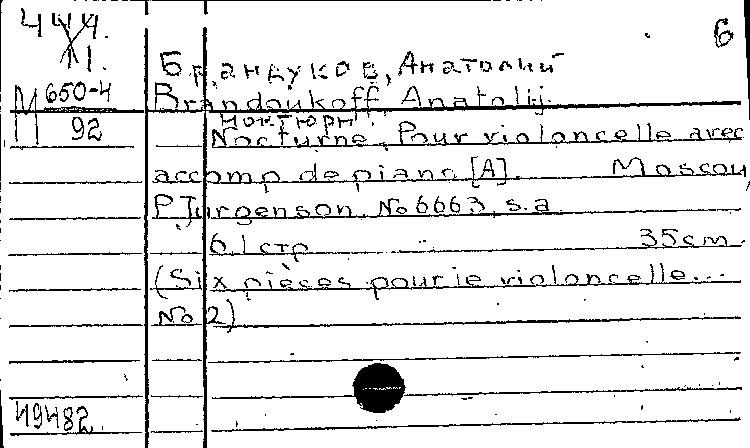 444.
XI.
6
Брандуков, Анатолий
М 650-4
Brandoukoff, Anatolij.
П 92
Ноктюрн.
Nocturne, Pour violoncelle avec
accomp de piano [A]. Moscou,
P. Jurgenson, No 6663, s.a.
6.1 стр 35 cm
(Six pièces pour le violoncelle...
No 2)
49482